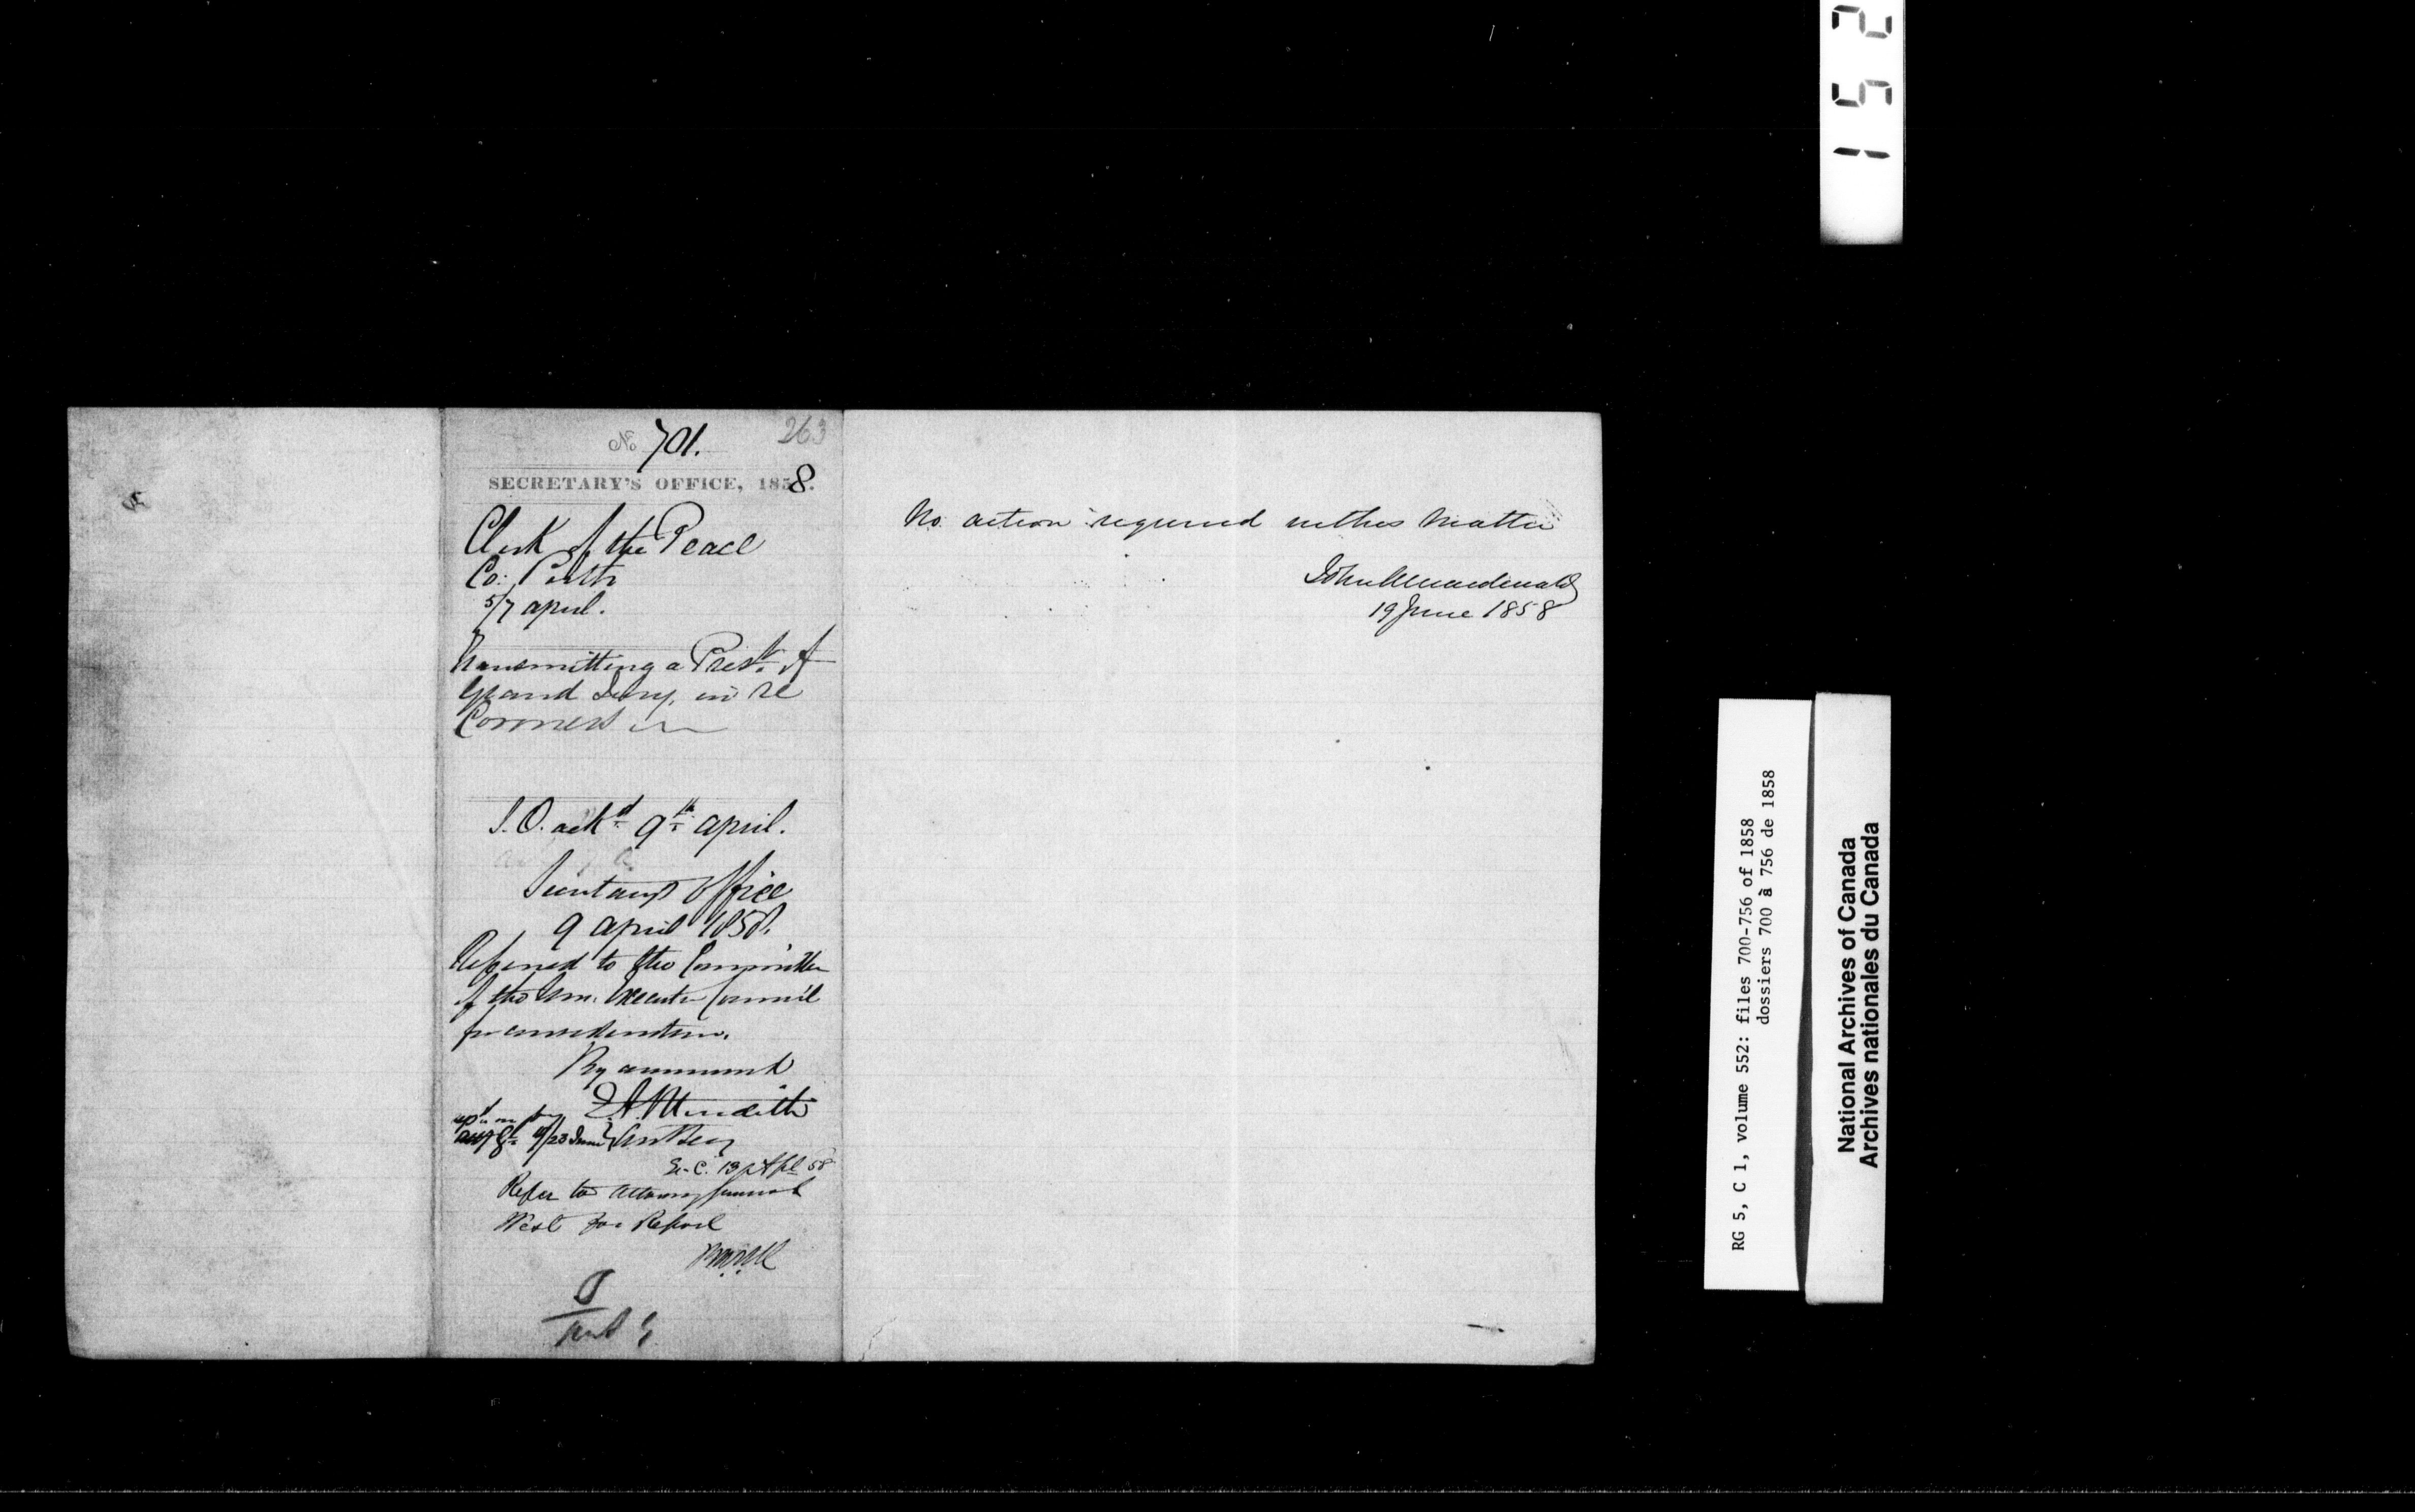 No 701.
263
SECRETARY'S OFFICE, 1858.
Clerk of the Peace
Co: Perth
5/7 april.
Transmitting a Prest. of
Grand Jury, in re
Coroners
ackd 9th april.
Secretary's Office
9 April 1858.
Referred to the Committee
of the Hon. Executive Council
for consideration.
By command
E. A. Meredith
Asst Secy
Ex. C. 13 Apl 58
Refer to Attorney General
West for Report
No action required in this matter
John A Macdonald
19 June 1858
152
RG 5, C 1, volume 552: files 700-756 of 1858
dossiers 700 à 756 de 1858
National Archives of Canada
Archives nationales du Canada